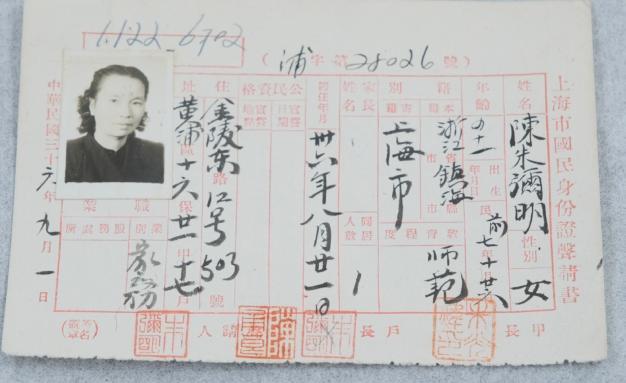 1.122_6702
（浦字第28026號）
上海市國民身份證聲請書
姓名 陳朱彌明 性別 女
年齡 五十一 出生年月日 民前七十廿六
籍別 本籍 浙江省鎮海縣市 寄籍 上海市
教育程度 師范
家長姓名
同居人數 1
初住年月 卅六年八月廿一日
公民資格
住址 金陵東路12号503號
黃浦區十六保廿一甲十七戶
職業 業別 家務 服務處所
甲長
戶長
聲請人
中華民國三十六年九月一日